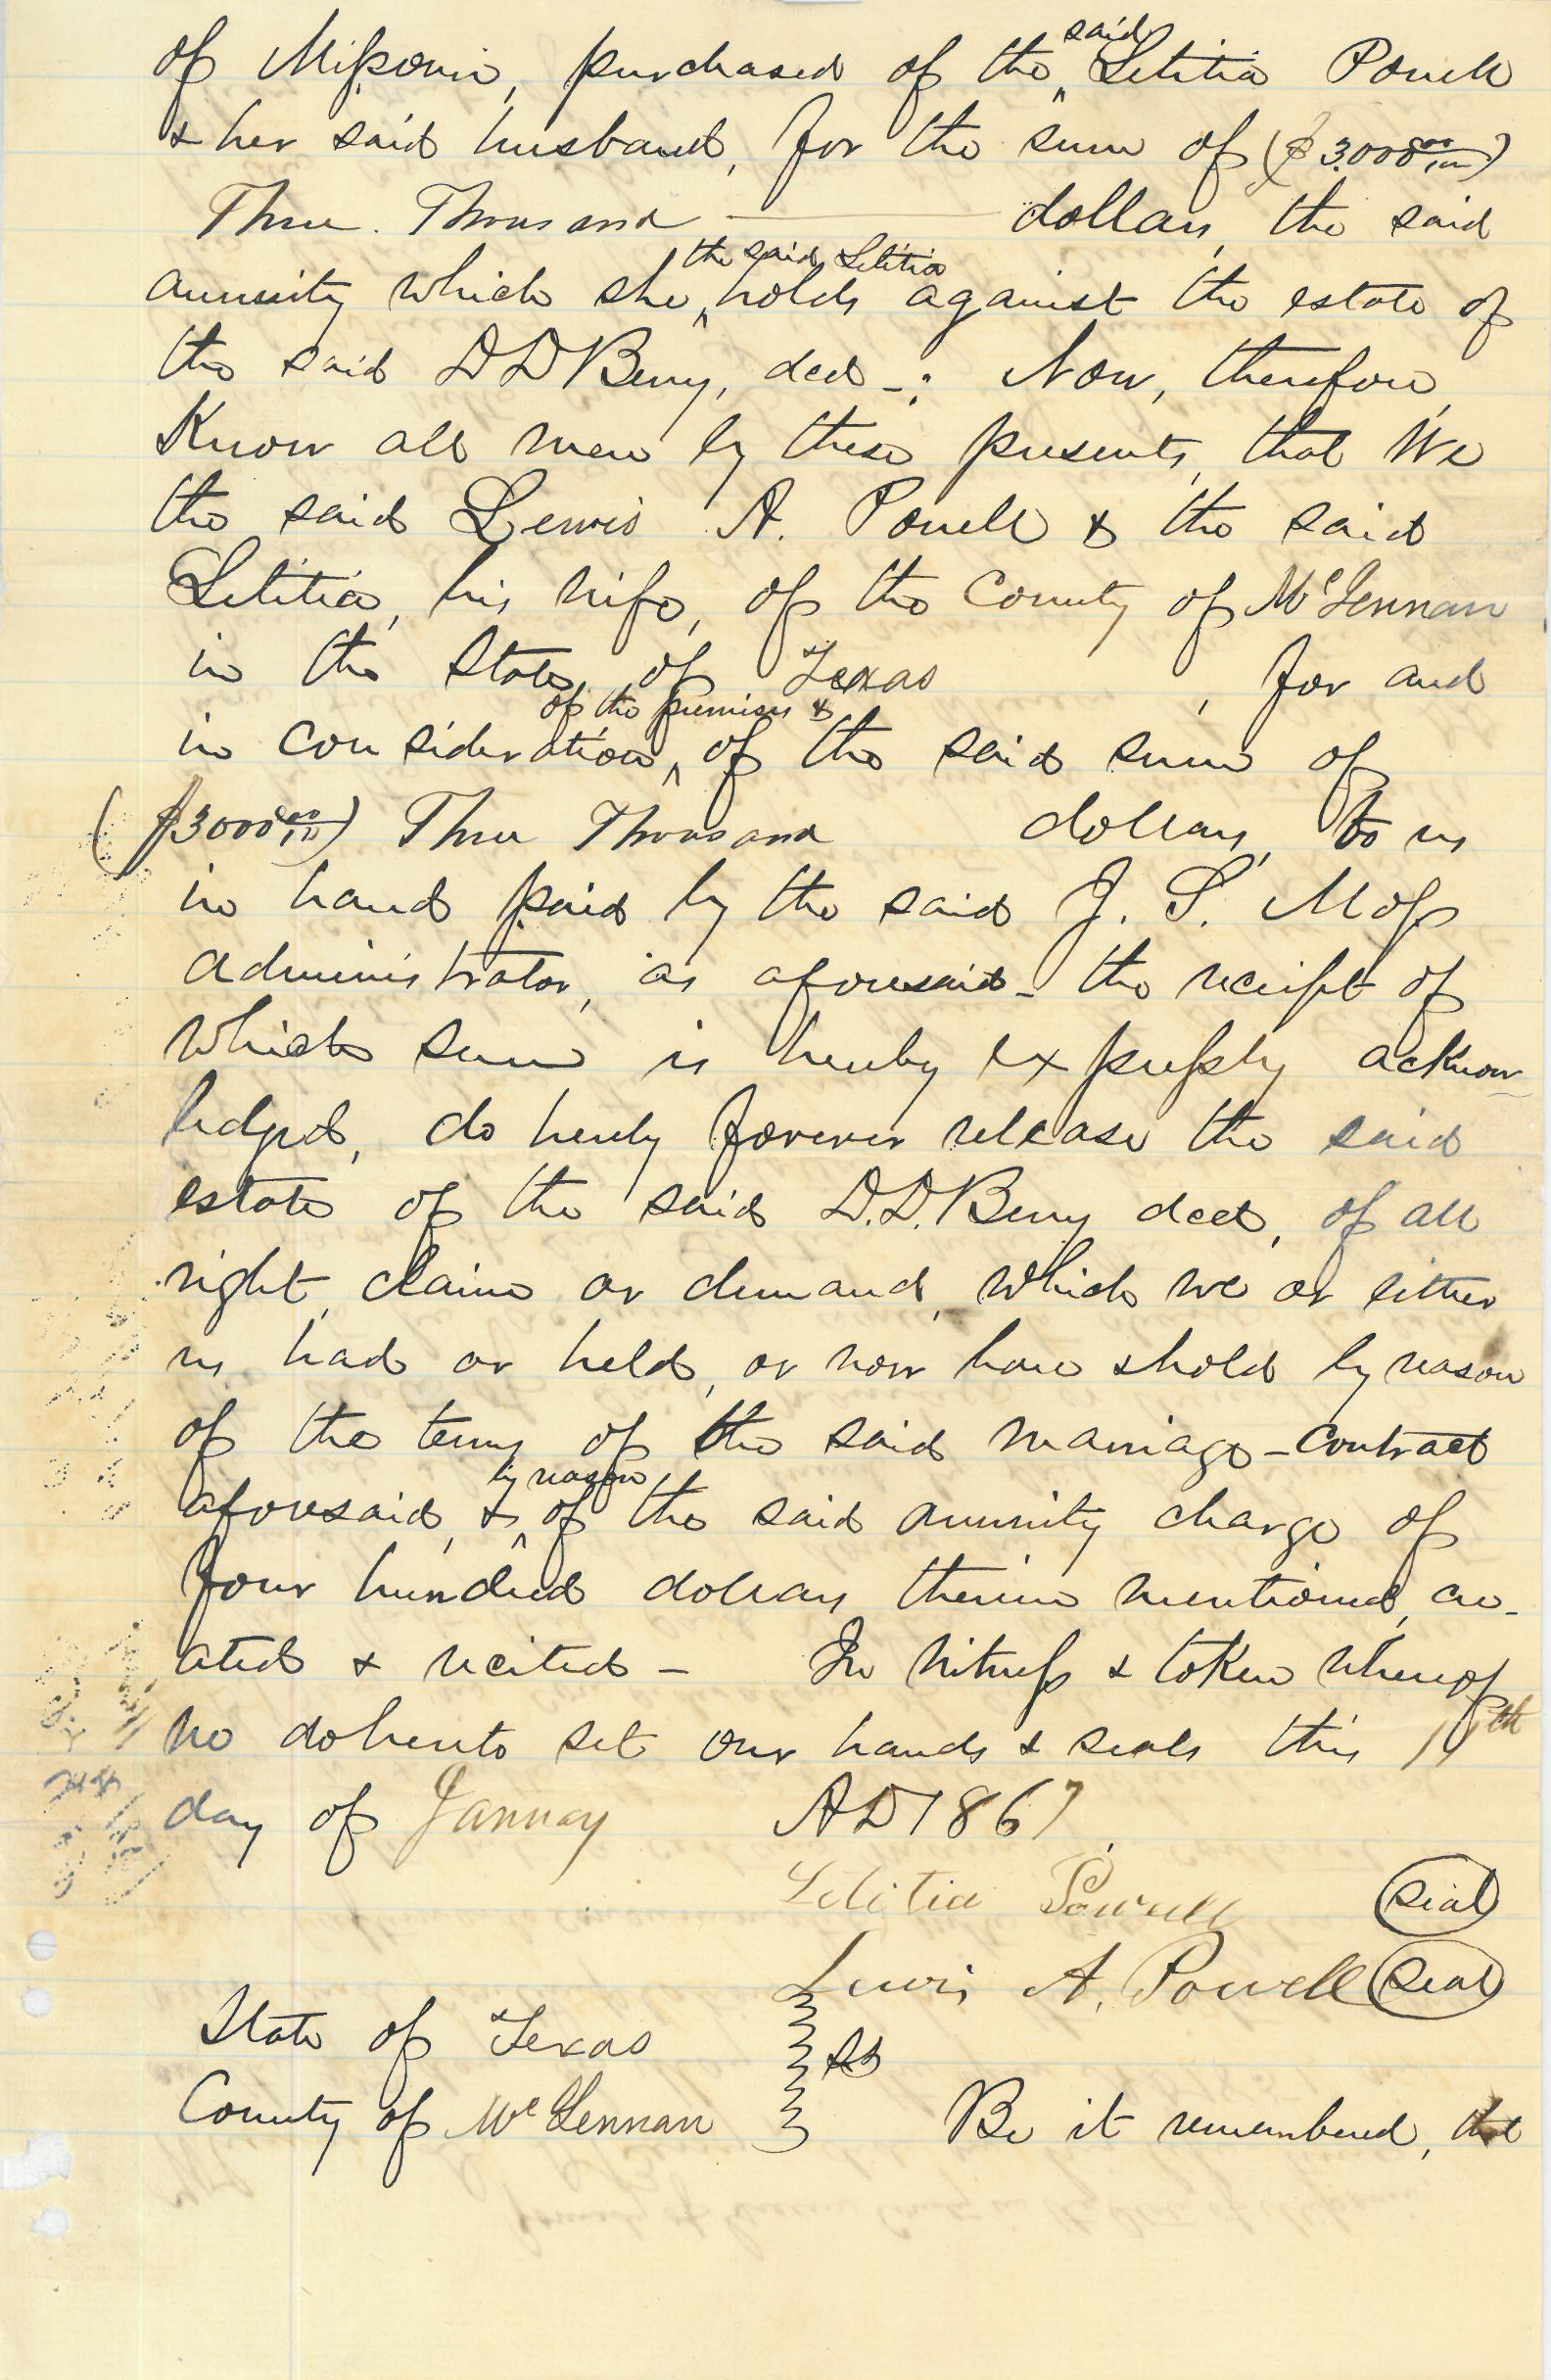 of Missouri, purchased of the ^said Letitia Powell
& her said husband, for the sum of ($3.000 00/100)
Three Thousand — dollars, the said
annuity which she ^the said Letitia holds against the estate of
the said D D Berry, decd -; Now, therefore,
Know all men by these presents, that We
the said Lewis A. Powell & the said
Letitia, his wife, of the County of McLennan
in the State of Texas , for and
in consideration ^of the premises & of the said sum of
($3000 00/100) Three Thousand dollars, to us
in hand paid by the said J. S. Moss
administrator, as aforesaid - the receipt of
which sum is hereby expressly acknow
ledged, do hereby forever release the said
estate of the said D.D. Berry decd, of all
right, claim or demand, which we or either
us had or held, or now have & hold by reason
of the terms of the said marriage - contract
aforesaid, & ^by reason of the said annuity charge of
four hundred dollars therein mentioned, cre-
ated & recited - In witness & token whereof
we do hereto set our hands & seals this 11th
day of January AD 1867.
Letitia Powell (seal)
Lewis A. Powell (seal)
State of Texas
ss
County of McLennan Be it remembered, that